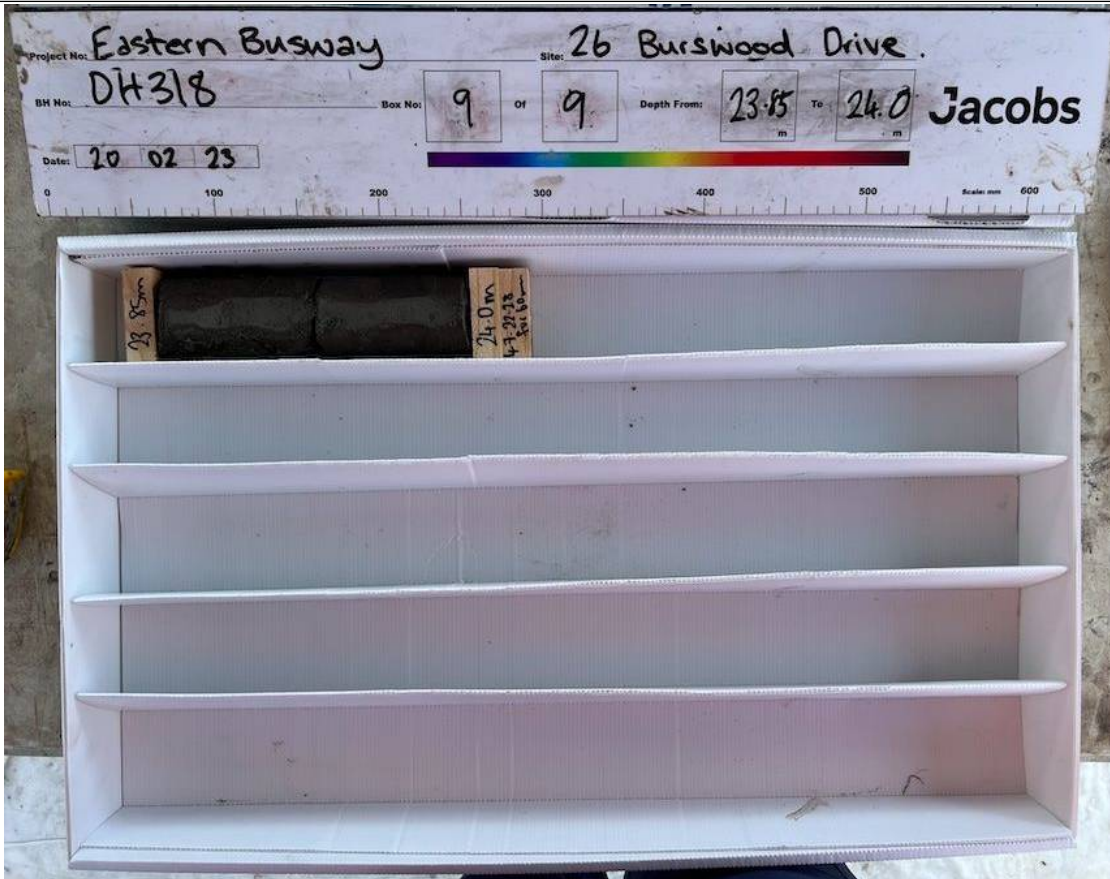 Project No: Eastern Busway Site: 26 Burswood Drive.
BH No: DH318 Box No: 9 Of 9 Depth From: 23.85 m To 24.0 m Jacobs
Date: 20 02 23
0 100 200 300 400 500 Scale: mm 600
23.85m
24.0m
for 60mm